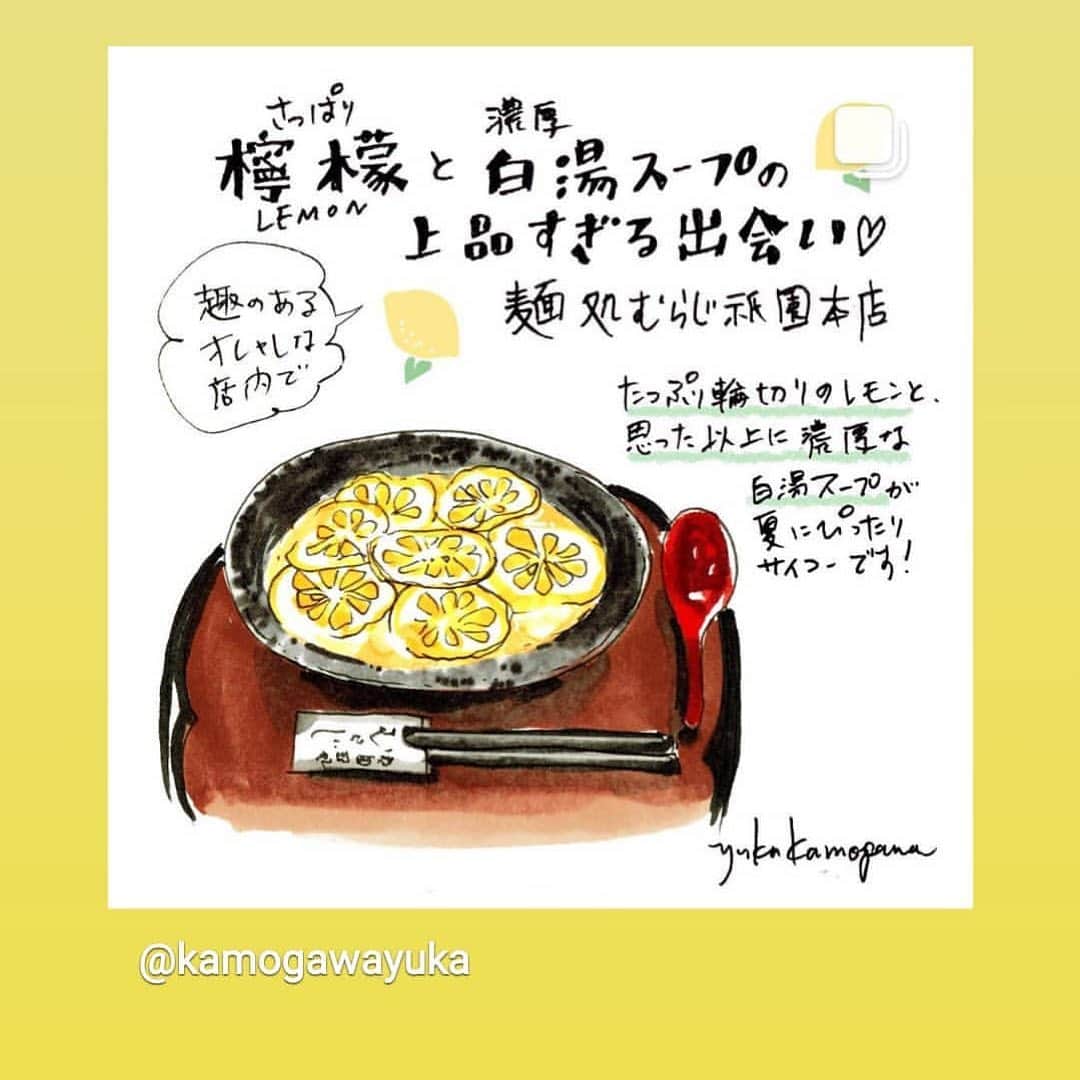 さっぱり 濃厚
檸檬と白湯スープの
LEMON
上品すぎる出会い♡
麺処むらじ祇園本店
趣のある
オシャレな
店内で
たっぷり輪切りのレモンと、
思った以上に濃厚な
白湯スープが
夏にぴったり
サイコーです!
むらじ
yukakamogawa
@kamogawayuka